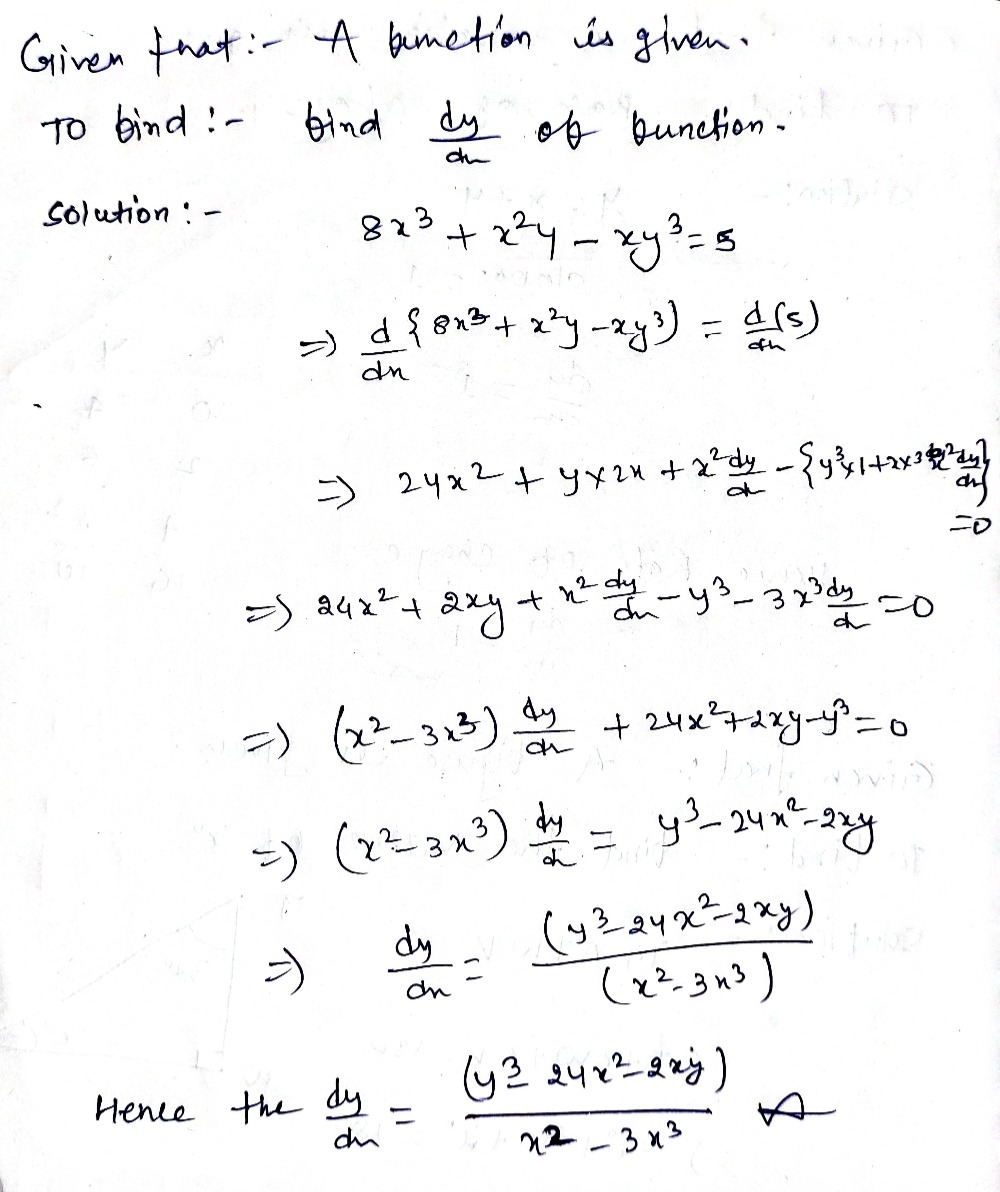 Given that :- A function is given.
To find :- find dy/dx of function.
Solution :- 8x³ + x²y - xy³ = 5
=> d/dx {8x³ + x²y - xy³) = d/dx (5)
=> 24x² + y×2x + x² dy/dx - {y³×1 + x×3x² dy/dx}
=0
=> 24x² + 2xy + x² dy/dx - y³ - 3x³ dy/dx = 0
=> (x² - 3x³) dy/dx + 24x² + 2xy - y³ = 0
=> (x² - 3x³) dy/dx = y³ - 24x² - 2xy
=> dy/dx = (y³ - 24x² - 2xy) / (x² - 3x³)
Hence the dy/dx = (y³ - 24x² - 2xy) / x² - 3x³